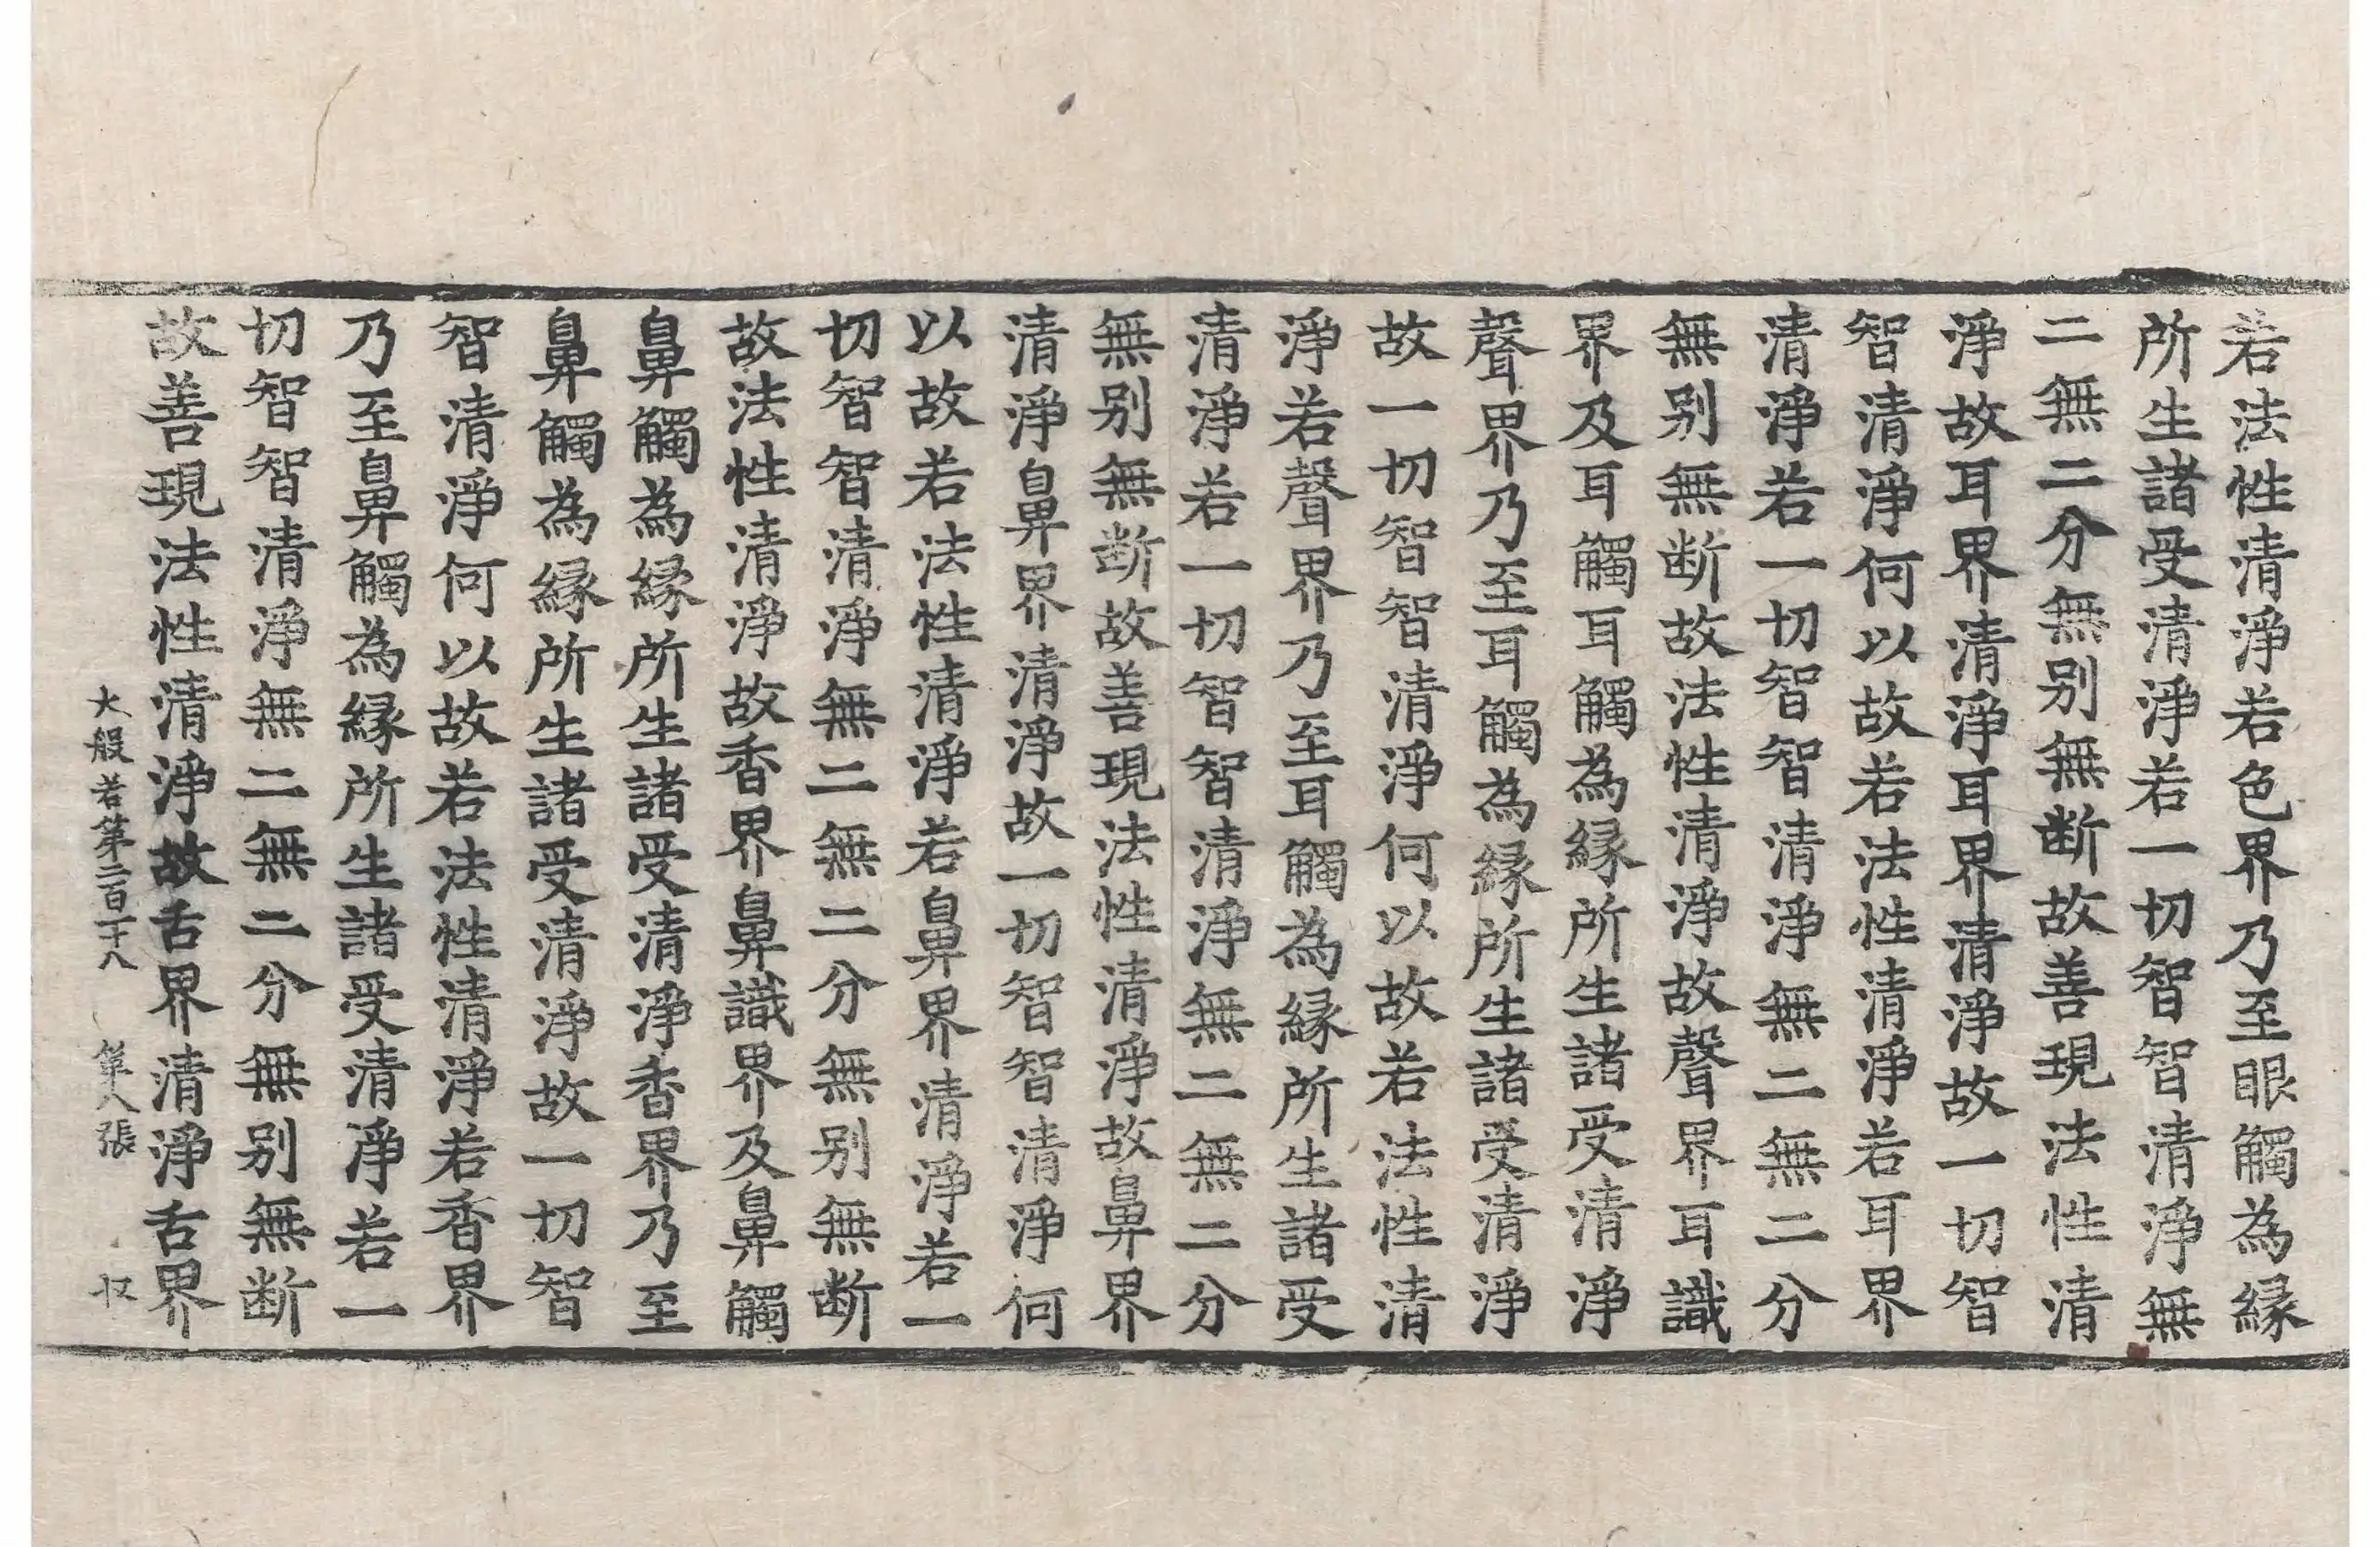 若法性清淨若色界乃至眼觸為縁
所生諸受清淨若一切智智清淨無
二無二分無別無断故善現法性清
淨故耳界清淨耳界清淨故一切智
智清淨何以故若法性清淨若耳界
清淨若一切智智清淨無二無二分
無別無断故法性清淨故聲界耳識
界及耳觸耳觸為縁所生諸受清淨
聲界乃至耳觸為縁所生諸受清淨
故一切智智清淨何以故若法性清
淨若聲界乃至耳觸為縁所生諸受
清淨若一切智智清淨無二無二分
無別無断故善現法性清淨故鼻界
清淨鼻界清淨故一切智智清淨何
以故若法性清淨若鼻界清淨若一
切智智清淨無二無二分無別無断
故法性清淨故香界鼻識界及鼻觸
鼻觸為縁所生諸受清淨香界乃至
鼻觸為縁所生諸受清淨故一切智
智清淨何以故若法性清淨若香界
乃至鼻觸為縁所生諸受清淨若一
切智智清淨無二無二分無別無断
故善現法性清淨故舌界清淨舌界
大般若第二百二十八 第八張